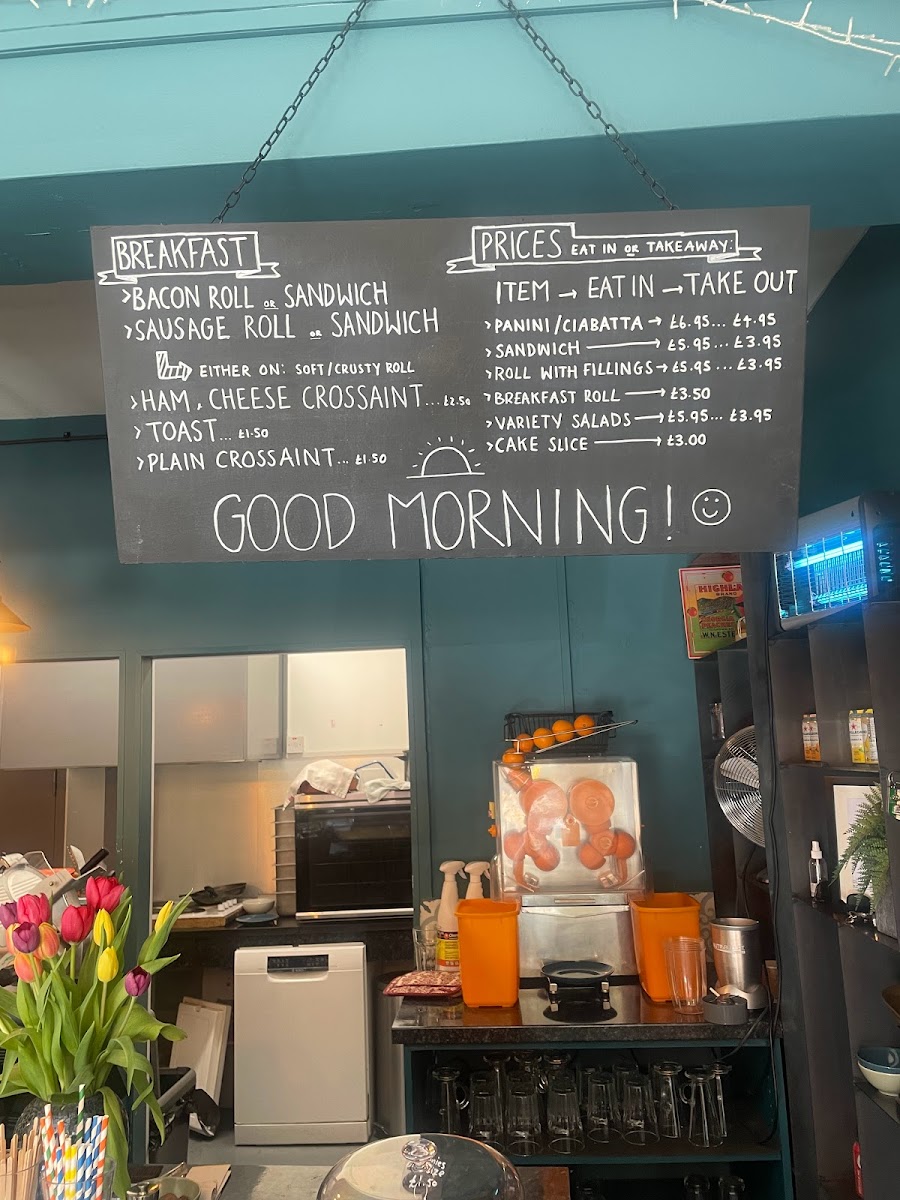 BREAKFAST
>BACON ROLL OR SANDWICH
>SAUSAGE ROLL OR SANDWICH
EITHER ON: SOFT/CRUSTY ROLL
>HAM, CHEESE CROSSAINT...£2.50
>TOAST... £1.50
>PLAIN CROSSAINT... £1.50
PRICES EAT IN OR TAKEAWAY:
ITEM → EAT IN → TAKE OUT
>PANINI/CIABATTA → £6.95... £4.95
>SANDWICH → £5.95... £3.95
>ROLL WITH FILLINGS → £5.95... £3.95
>BREAKFAST ROLL → £3.50
>VARIETY SALADS → £5.95... £3.95
>CAKE SLICE → £3.00
GOOD MORNING!
HIGHLA
BRAND
£1.50